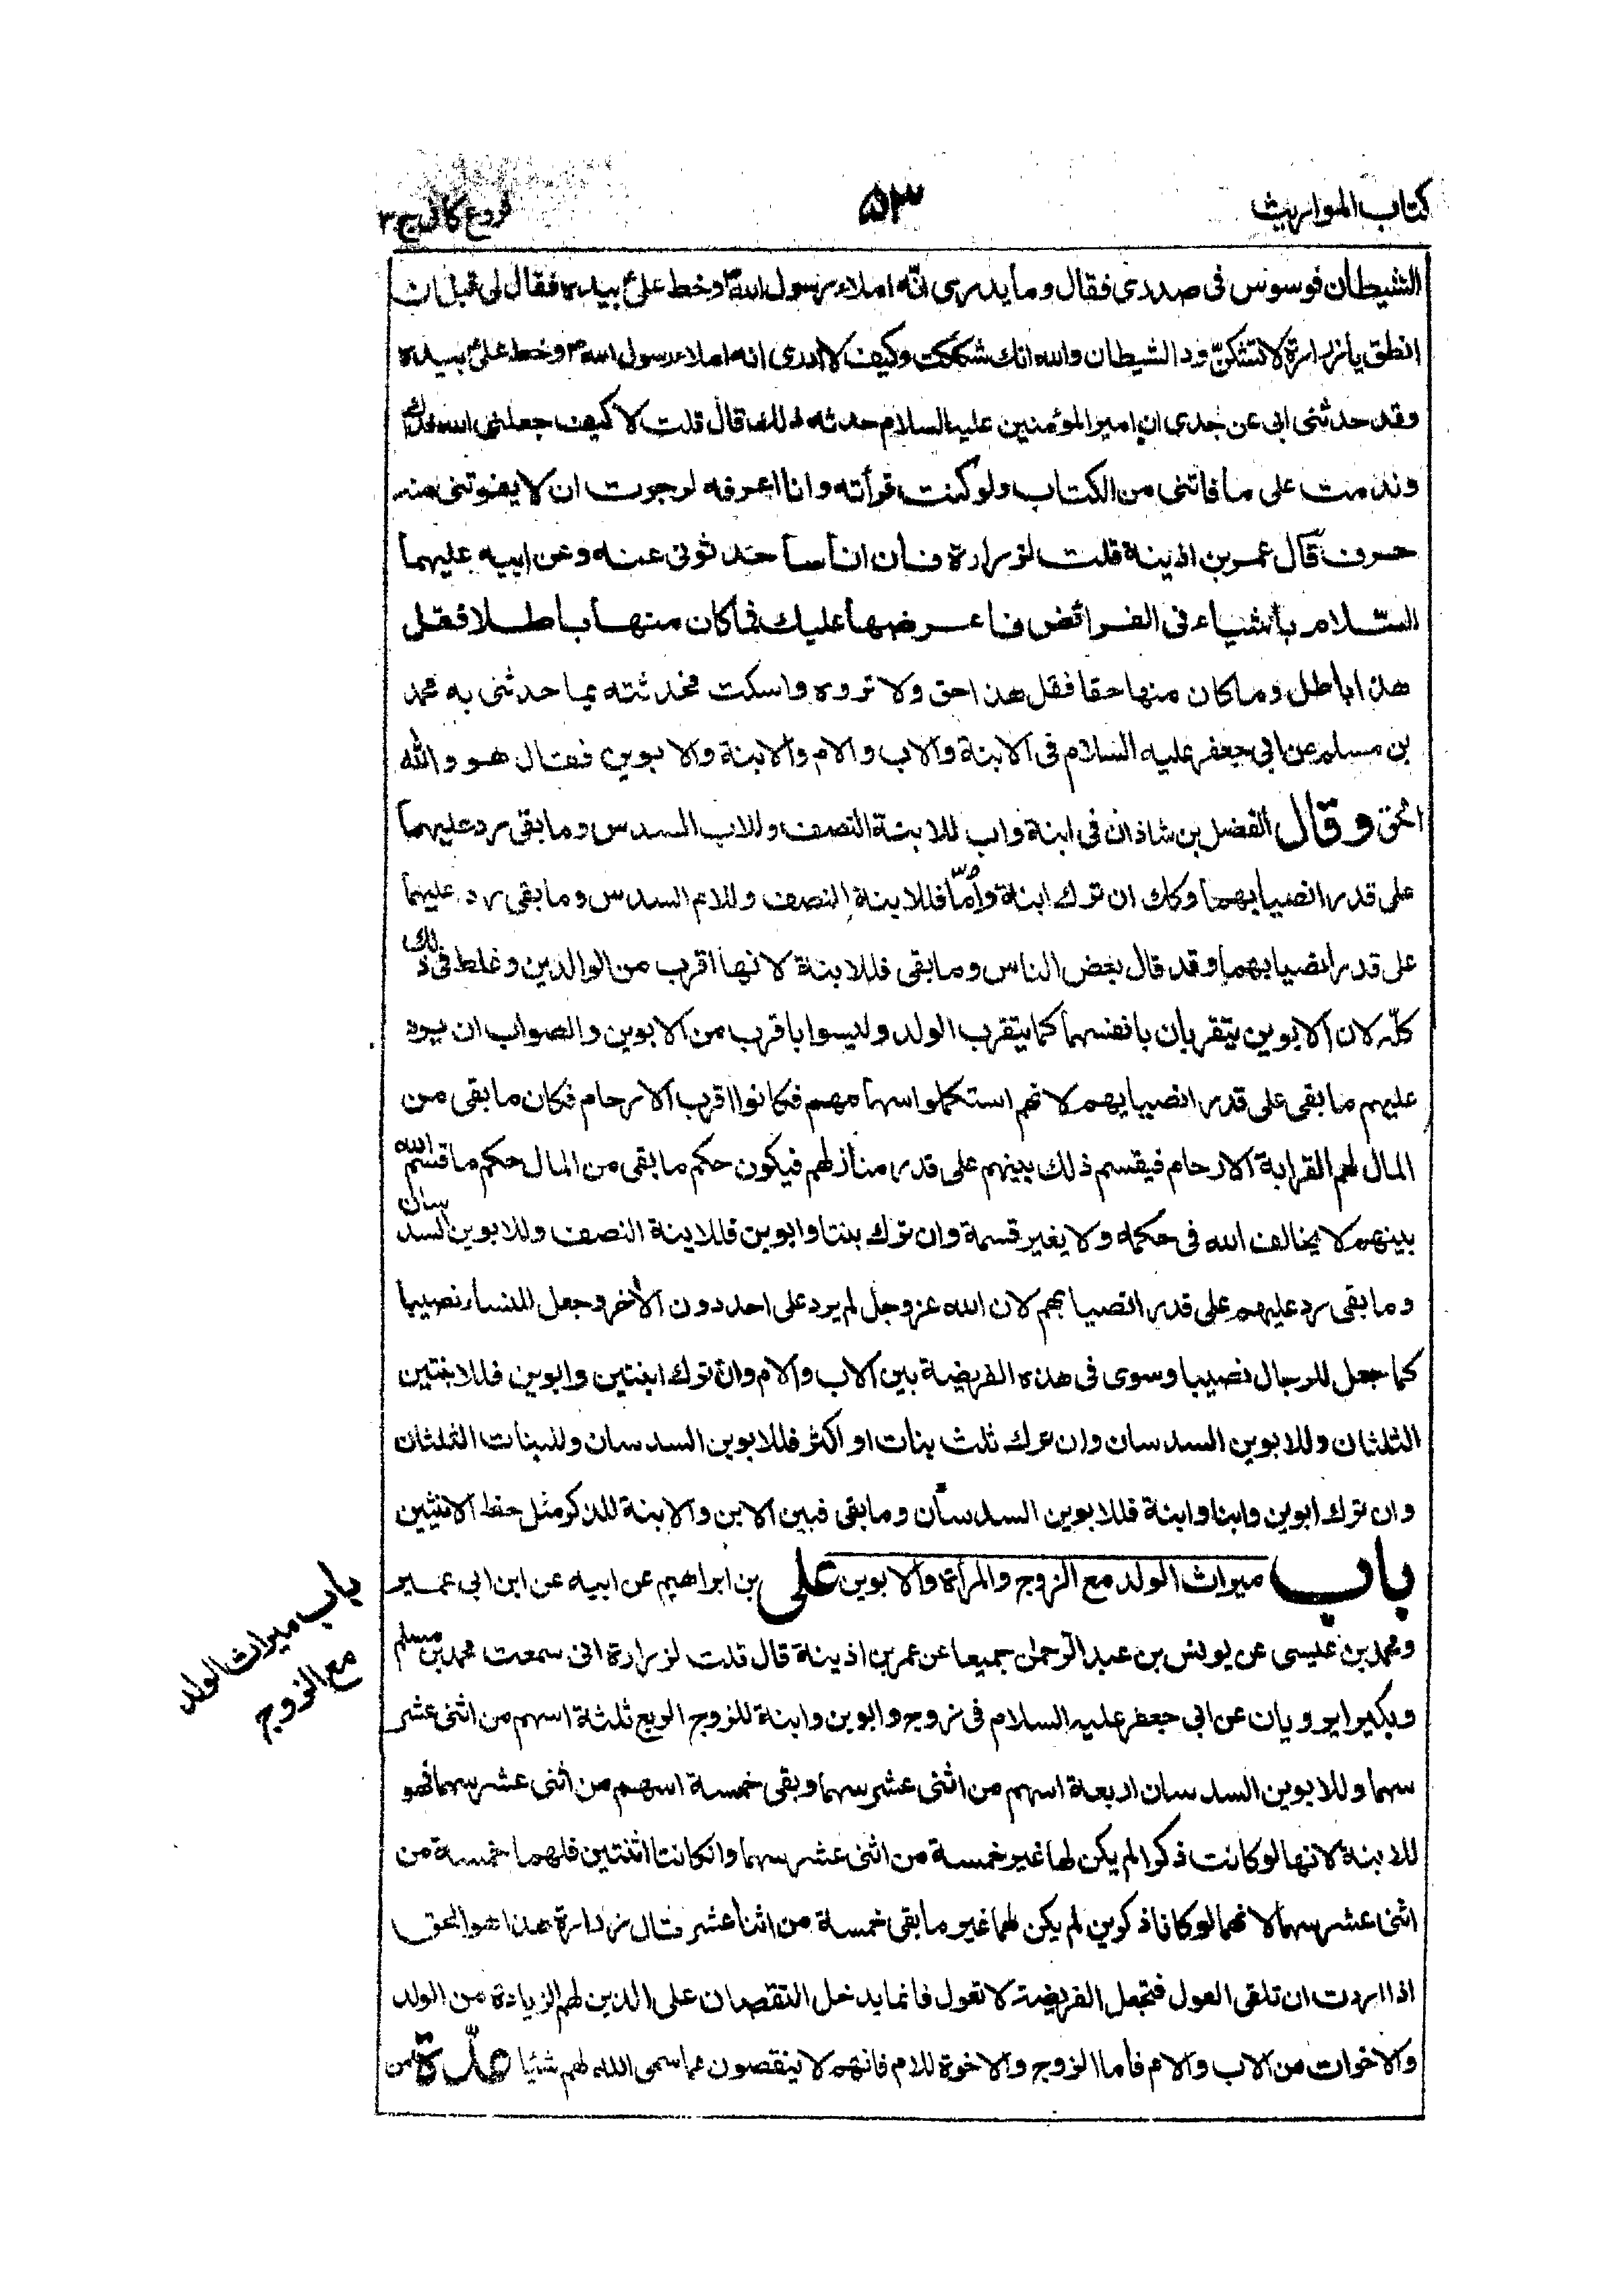 كتاب المواريث
٥٣
فروع كافى ج ٣
الشيطان فوسوس فى صدرى فقال وما يدرى انّه املاء رسول الله ص وخط علىّ ع بيده فقال لى قبل ان
انطق يا زرارة لا تشكنّ ود الشيطان والله انك شككت وكيف لا ادرى انه املاء رسول الله ص وخط على ع بيده
وقد حدثنى ابى عن جدى ان امير المؤمنين عليه السلام حدثه ذلك قال قلت لا كيف جعلنى الله فداك
وندمت على ما فاتنى من الكتاب ولو كنت قرأته وانا اعرفه لرجوت ان لا يفوتنى منه
حرف قال عمر بن اذينة قلت لزرارة فان اناسا حدثونى عنه وعن ابيه عليهما
السّلام باشياء فى الفرائض فاعرضها عليك فما كان منها باطلا فقل
هذا باطل وما كان منها حقا فقل هذا حق ولا تروه واسكت فحدثته بما حدثنى به محمد
بن مسلم عن ابى جعفر عليه السلام فى الابنة والاب والام والابنة والابوين فقال هو والله
الحق وقال الفضل بن شاذان فى ابنة واب للابنة النصف وللاب السدس وما بقى رد عليهما
على قدر انصبايهما وكك ان ترك ابنة وامّا فللابنة النصف وللام السدس وما بقى رد عليهما
على قدر انصبايهما وقد قال بعض الناس وما بقى فللابنة لانها اقرب من الوالدين وغلط فى ذلك
كلّه لان الابوين يتقربان بانفسهما كما يتقرب الولد وليسوا باقرب من الابوين والصواب ان يرد
عليهم ما بقى على قدر انصبايهم لانهم استكملوا سهامهم فكانوا اقرب الارحام فكان ما بقى من
المال لهم القرابة الارحام فيقسم ذلك بينهم على قدر منازلهم فيكون حكم ما بقى من المال حكم ما قسم الله
بينهم لا يخالف الله فى حكمه ولا يغير قسمة وان ترك بنتا وابوين فللابنة النصف وللابوين السدسان
وما بقى رد عليهم على قدر انصبايهم لان الله عز وجل لم يرد على احد دون الاخر وجعل للنساء نصيبا
كما جعل للرجال نصيبا وسوى فى هذه الفريضة بين الاب والام وان ترك ابنتين وابوين فللابنتين
الثلثان وللابوين السدسان وان ترك ثلث بنات او اكثر فللابوين السدسان وللبنات الثلثان
وان ترك ابوين وابنا وابنة فللابوين السدسان وما بقى فبين الابن والابنة للذكر مثل حظ الانثيين
باب ميراث الولد مع الزوج والمرأة والابوين على بن ابراهيم عن ابيه عن ابن ابى عمير
ومحمد بن عيسى عن يونس بن عبد الرحمن جميعا عن عمر بن اذينة قال قلت لزرارة انى سمعت محمد بن مسلم
وبكيرا يرويان عن ابى جعفر عليه السلام فى زوج وابوين وابنة للزوج الربع ثلثة اسهم من اثنى عشر
سهما وللابوين السدسان اربعة اسهم من اثنى عشر سهما وبقى خمسة اسهم من اثنى عشر سهما فهو
للابنة لانها لو كانت ذكرا لم يكن لها غير خمسة من اثنى عشر سهما وان كانتا اثنتين فلهما خمسة من
اثنى عشر سهما لانهما لو كانا ذكرين لم يكن لهما غير ما بقى خمسة من اثنا عشر فقال زرارة هذا هو الحق
اذا اردت ان تلقى العول فتجعل الفريضة لا تعول فانما يدخل النقصان على الذين لهم الزيادة من الولد
والاخوات من الاب والام فأما الزوج والاخوة للام فانهم لا ينقصون مما سمى الله لهم شيئا عدّة من
باب ميراث الولد
مع الزوج